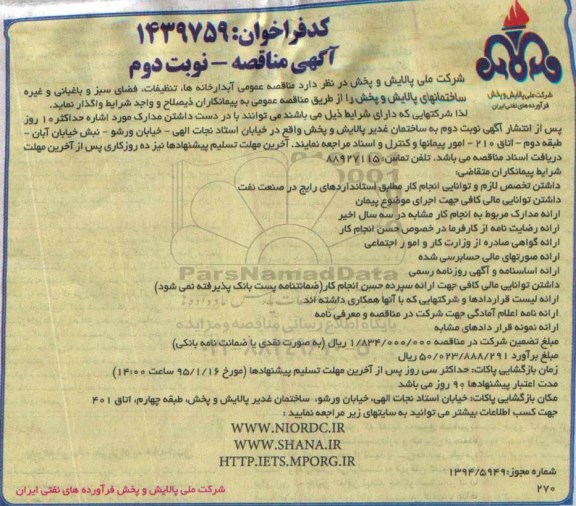 کدفراخوان: ۱۴۳۹۷۵۹
آگهی مناقصه - نوبت دوم
شرکت ملی پالایش و پخش
فرآورده های نفتی ایران
شرکت ملی پالایش و پخش در نظر دارد مناقصه عمومی آبدارخانه ها، تنظیفات، فضای سبز و باغبانی و غیره
ساختمانهای پالایش و پخش را از طریق مناقصه عمومی به پیمانکاران ذیصلاح و واجد شرایط واگذار نماید.
لذا شرکتهایی که دارای شرایط ذیل می باشند می توانند با در دست داشتن مدارک مورد اشاره حداکثر ۱۰ روز
پس از انتشار آگهی نوبت دوم به ساختمان غدیر پالایش و پخش واقع در خیابان استاد نجات الهی - خیابان ورشو - نبش خیابان آبان -
طبقه دوم - اتاق ۲۱۰ - امور پیمانها و کنترل و اسناد مراجعه نمایند. آخرین مهلت تسلیم پیشنهادها نیز ده روزکاری پس از آخرین مهلت
دریافت اسناد مناقصه می باشد. تلفن تماس: ۸۸۹۲۷۱۱۵
شرایط پیمانکاران متقاضی:
داشتن تخصص لازم و توانایی انجام کار مطابق استانداردهای رایج در صنعت نفت
داشتن توانایی مالی کافی جهت اجرای موضوع پیمان
ارائه مدارک مربوط به انجام کار مشابه در سه سال اخیر
ارائه رضایت نامه از کارفرما در خصوص حسن انجام کار
ارائه گواهی صادره از وزارت کار و امور اجتماعی
ارائه صورتهای مالی حسابرسی شده
ارائه اساسنامه و آگهی روزنامه رسمی
داشتن توانایی مالی کافی جهت ارائه سپرده حسن انجام کار(ضمانتنامه پست بانک پذیرفته نمی شود)
ارائه لیست قراردادها و شرکتهایی که با آنها همکاری داشته اند
ارائه نامه اعلام آمادگی جهت شرکت در مناقصه و معرفی نامه
ارائه نمونه قرار دادهای مشابه
مبلغ تضمین شرکت در مناقصه ۱/۸۳۴/۰۰۰/۰۰۰ ریال (به صورت نقدی یا ضمانت نامه بانکی)
مبلغ برآورد ۵۰/۰۲۳/۸۸۸/۲۹۱ ریال
زمان بازگشایی پاکات: حداکثر سی روز پس از آخرین مهلت تسلیم پیشنهادها (مورخ ۹۵/۱/۱۶ ساعت ۱۴:۰۰)
مدت اعتبار پیشنهادها ۹۰ روز می باشد
مکان بازگشایی پاکات: خیابان استاد نجات الهی، خیابان ورشو، ساختمان غدیر پالایش و پخش، طبقه چهارم، اتاق ۴۰۱
جهت کسب اطلاعات بیشتر می توانید به سایتهای زیر مراجعه نمایید :
WWW.NIORDC.IR
WWW.SHANA.IR
HTTP.IETS.MPORG.IR
شماره مجوز: ۱۳۹۴/۵۹۴۹
۲۷۰
شرکت ملی پالایش و پخش فرآورده های نفتی ایران
ParsNamadData
پایگاه اطلاع رسانی مناقصه و مزایده